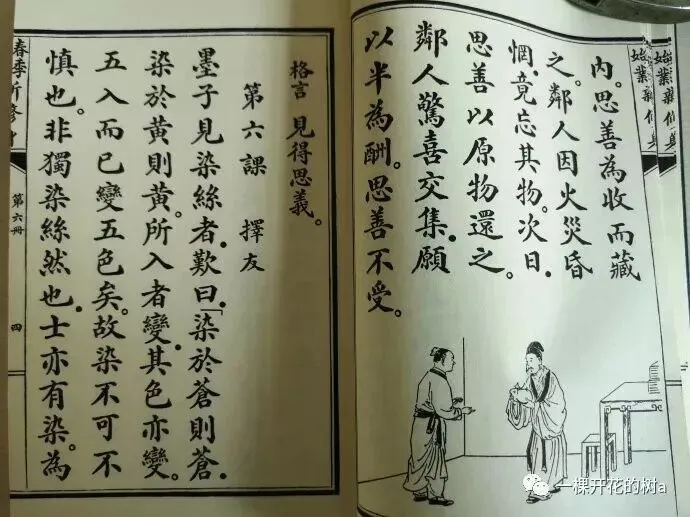 內。思善為收而藏
之。鄰人因火災昏
惘,竟忘其物。次日,
思善以原物還之。
鄰人驚喜交集,願
以半為酬。思善不受。
格言 見得思義。
第六課 擇友
墨子見染絲者,歎曰,「染於蒼則蒼,
染於黃則黃。所入者變,其色亦變。
五入而已變五色矣。故染不可不
慎也。非獨染絲然也,士亦有染。為
第六冊
四
一棵开花的树a